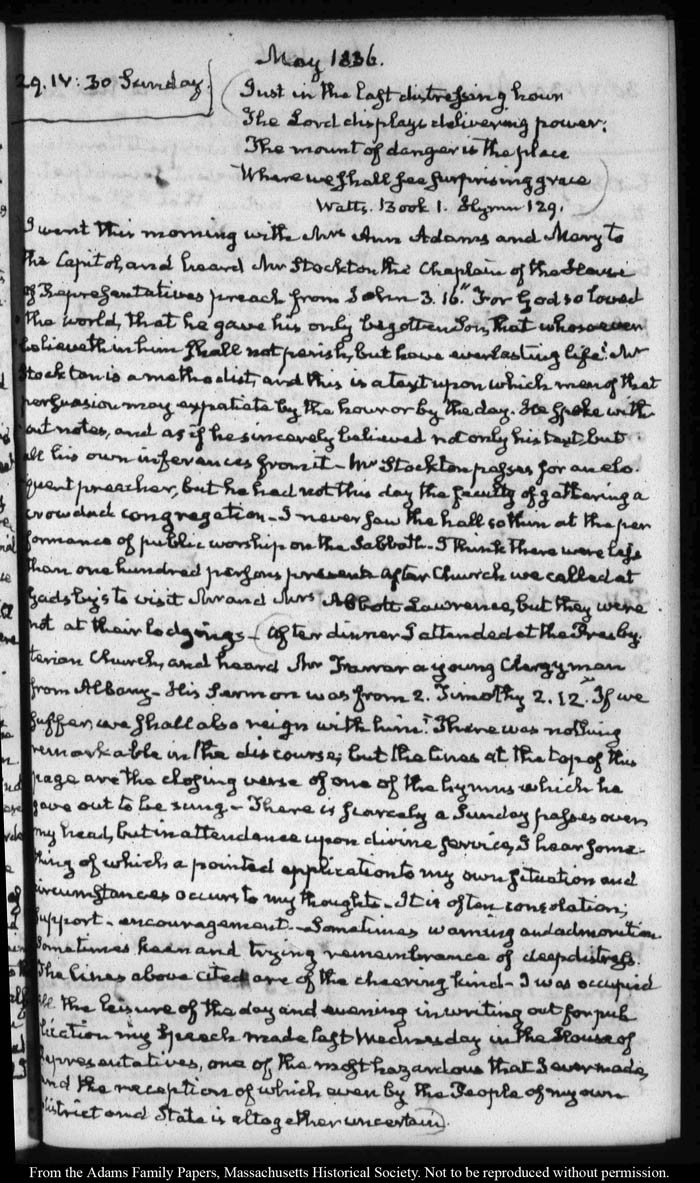 May 1836.
29. IV: 30 Sunday.
Just in the last distressing hour
The Lord displays delivering power:
The mount of danger is the place
Where we shall see surprising grace
Watts. Book 1. Hymn 129.
I went this morning with Mrs Ann Adams and Mary to
the Capitol, and heard Mr Stockton the Chaplain of the House
of Representatives preach from John 3. 16. "For God so loved
the world, that he gave his only begotten Son, that whosoever
believeth in him shall not perish, but have everlasting life". Mr
Stockton is a methodist, and this is a text upon which men of that
persuasion may expatiate by the hour or by the day. He spoke with-
out notes, and as if he sincerely believed not only his text, but
all his own inferences from it - Mr Stockton passes for an elo-
quent preacher, but he had not this day the faculty of gathering a
crowded congregation - I never saw the hall so thin at the per
formance of public worship on the Sabbath - I think there were less
than one hundred persons present. After Church we called at
Gadsby's to visit Mr and Mrs Abbott Lawrence, but they were
not at their lodgings - After dinner I attended at the Presby-
terian Church, and heard Mr Farrar a young Clergyman
from Albany - His Sermon was from 2. Timothy 2. 12. "If we
suffer, we shall also reign with him". There was nothing
remarkable in the discourse; but the lines at the top of this
page are the closing verse of one of the hymns which he
gave out to be sung - There is scarcely a Sunday passes over
my head, but in attendance upon divine service, I hear some-
thing of which a pointed application to my own situation and
circumstances occurs to my thoughts - It is often consolation;
support - encouragement - Sometimes warning and admonition
Sometimes keen and trying remembrance of deep distress.
The lines above cited are of the cheering kind - I was occupied
all the leisure of the day and evening in writing out for pub
lication my Speech made last Wednesday in the House of
Representatives, one of the most hazardous that I ever made,
and the reception of which even by the People of my own
district and State is altogether uncertain.
From the Adams Family Papers, Massachusetts Historical Society. Not to be reproduced without permission.